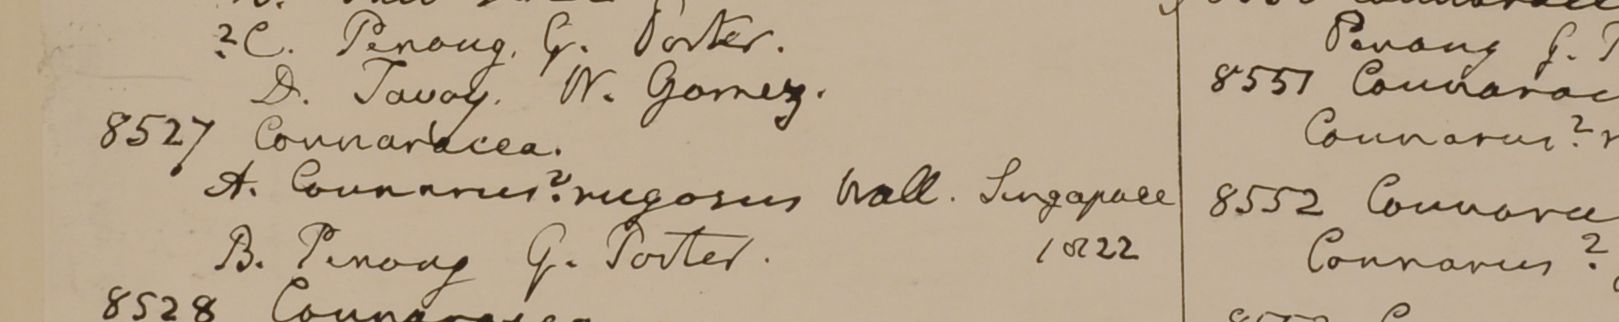 ?C. Penang. G. Porter.
D. Tavoy. W. Gomez.
8527 Connaracea.
A. Connarus? rugosus Wall. Singapore
1822
B. Penang G. Porter.
8528 Connaracea
Penang G.
8551
Connarus?
8552
Connarus?